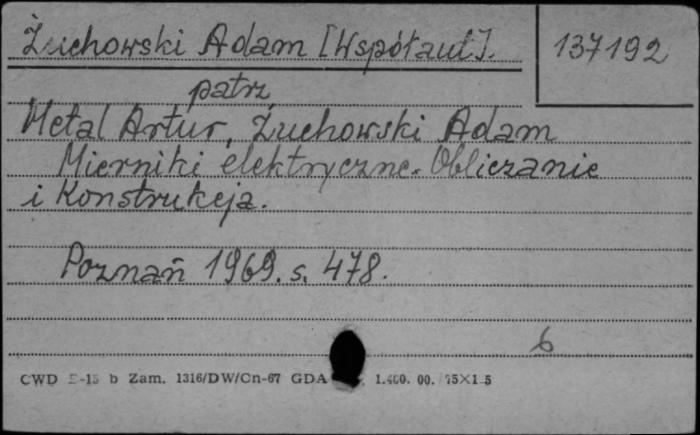 Żuchowski Adam [Współaut].
137192
patrz
Metal Artur, Żuchowski Adam
Mierniki elektryczne. Obliczanie
i Konstrukcja.
Poznań 1969. s. 478.
6
CWD b Zam. 1316/DW/Cn-67 GDA